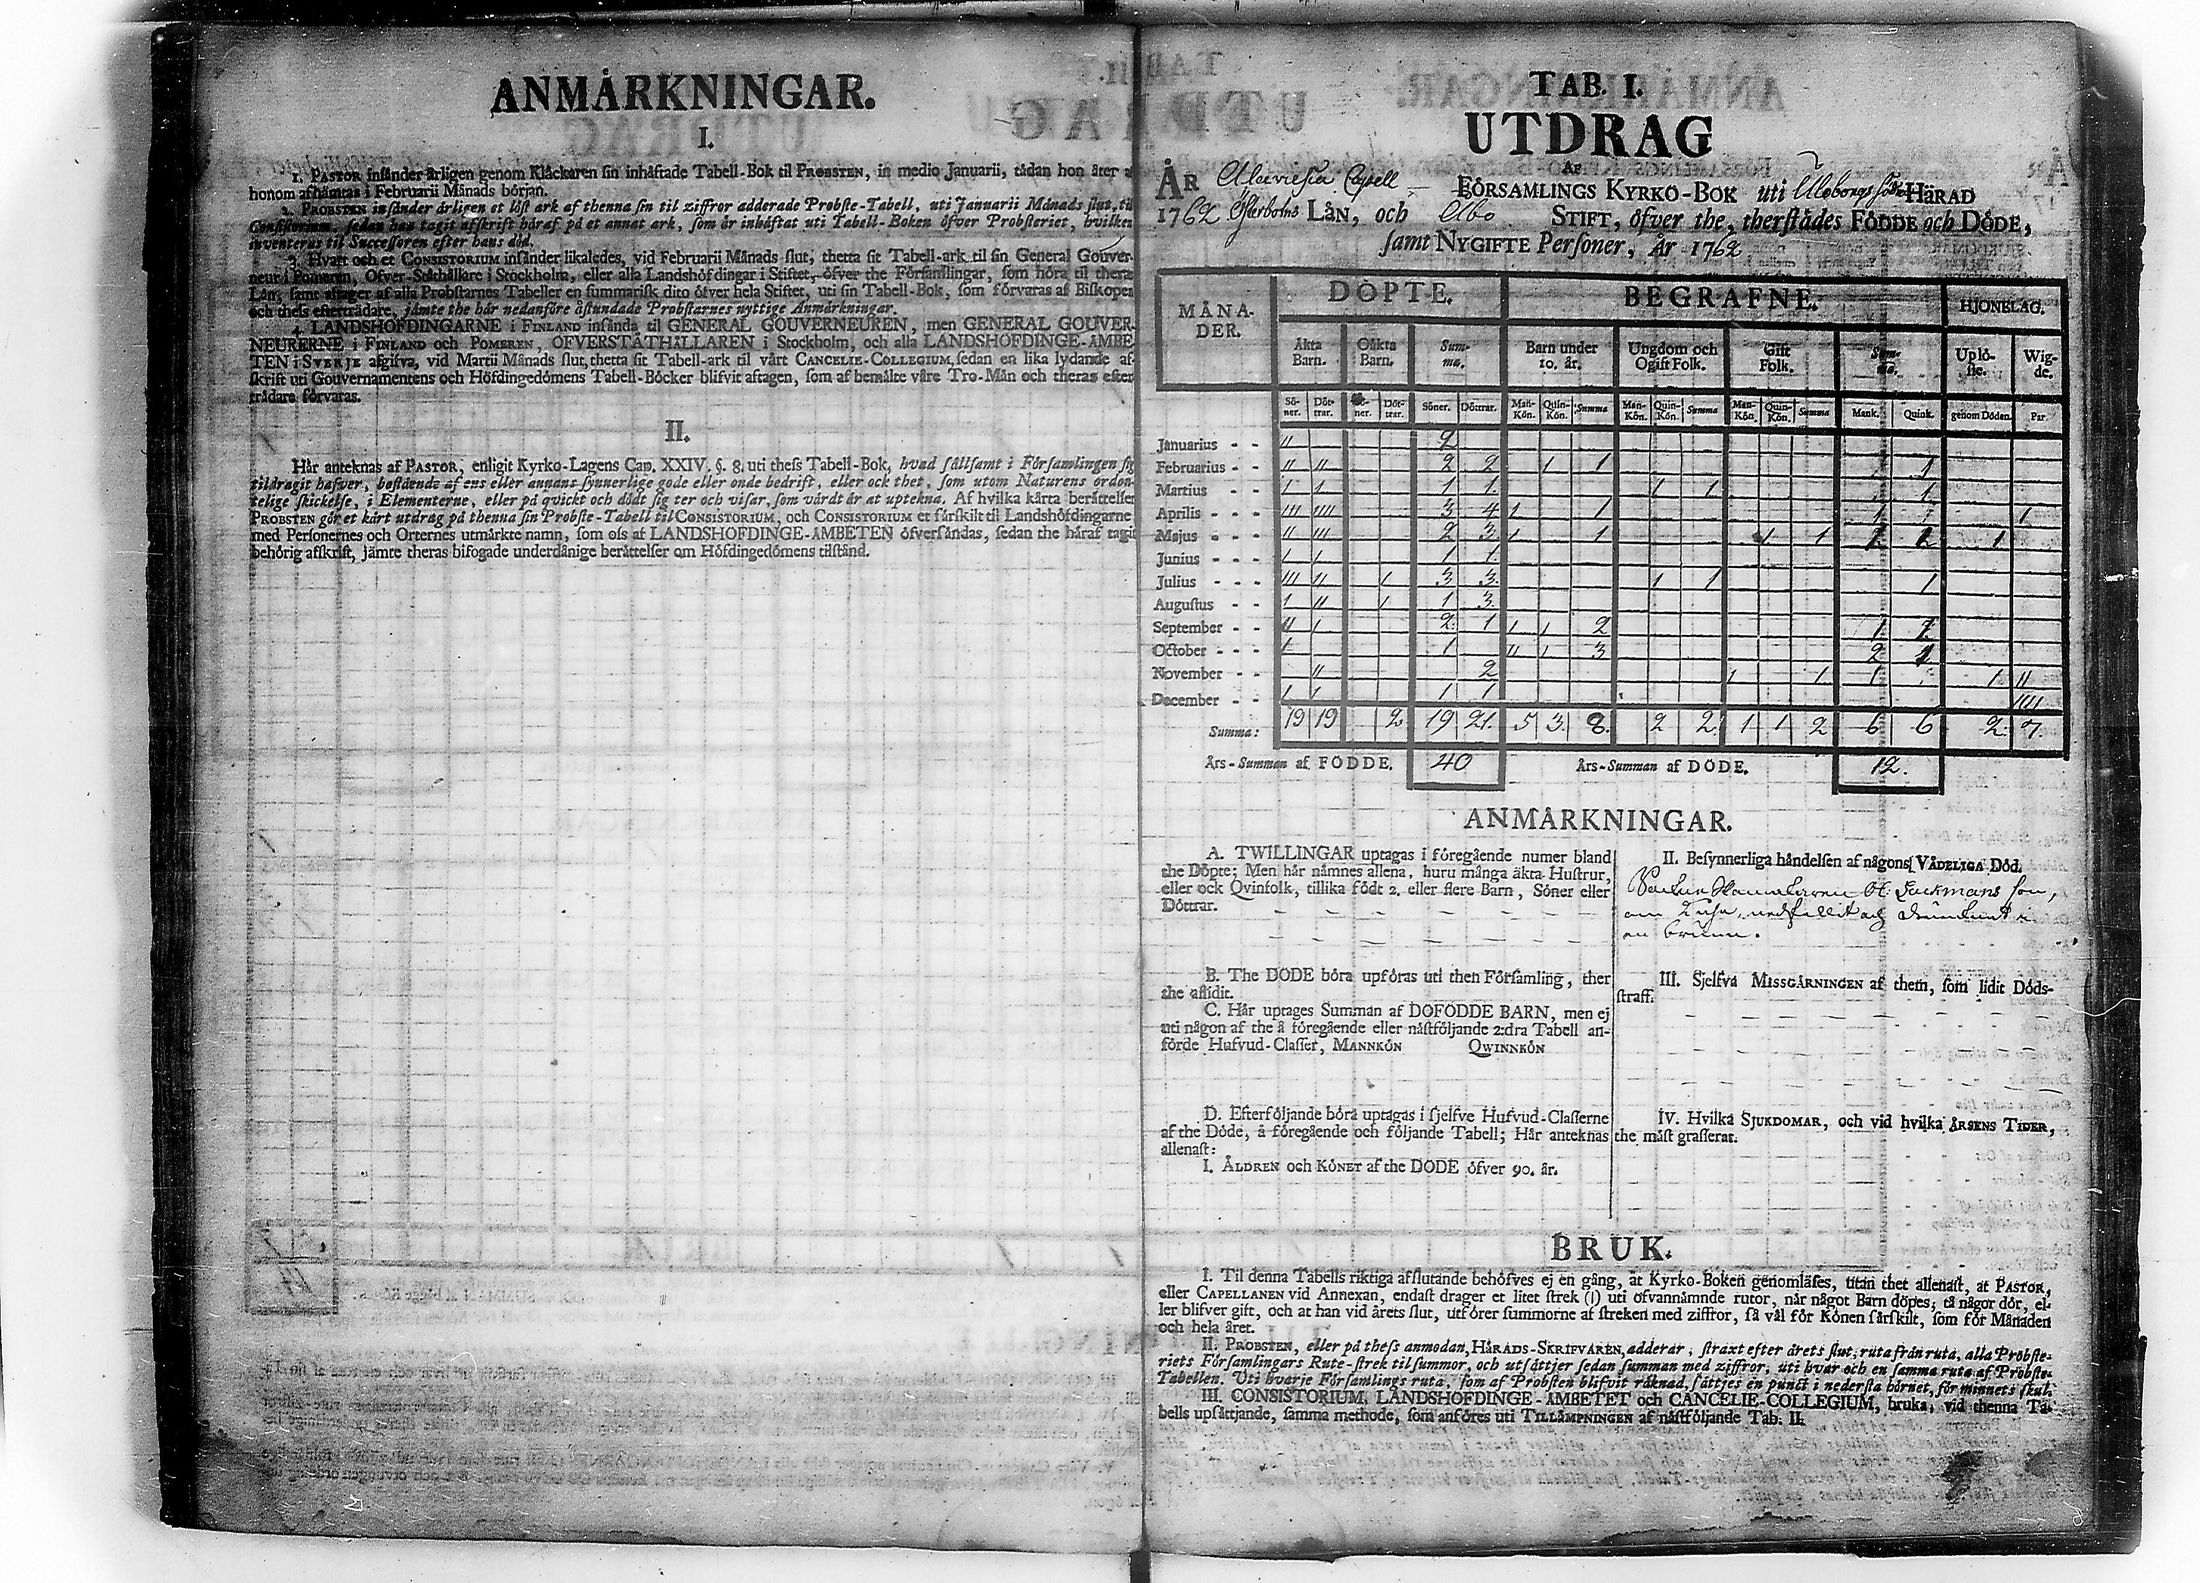 ANMÅRKNINGAR.
I.
1. PASTOR insånder årligen genom Klåckaren sin inhåftade Tabell-Bok til PROBSTEN, in medio Januarii, tådan hon åter a
honom afhåmtas i Februarii Månads början.
2. PROBSTEN insånder årligen et löst ark af thenna sin til ziffror adderade Probste-Tabell, uti Januarii Månads slut, til
Consistorium, sedan han tagit afskrift håraf på et annat ark, som år inhåftat uti Tabell-Boken öfver Probsteriet, hvilken
inventeras til Successoren efter hans död.
3. Hvart och et CONSISTORIUM insånder likaledes, vid Februarii Månads slut, thetta sit Tabell-ark til sin General Gouver-
neur i Pomeren, Ofver-Ståthållare i Stockholm, eller alla Landshöfdingar i Stiftet, öfver the Församlingar, som höra til theras
Lån, samt aftager af alla Probstarnes Tabeller en summarisk dito öfver hela Stiftet, uti sin Tabell-Bok, som förvaras af Biskopen
och thess efterträdare, jämte the hår nedanföre åstundade Probstarnes nyttige Anmärkningar.
4. LANDSHÖFDINGARNE i FINLAND insånda til GENERAL GOUVERNEUREN, men GENERAL GOUVER-
NEURERNE i FINLAND och POMEREN, OFVERSTÅTHÅLLAREN i Stockholm, och alla LANDSHOFDINGE-AMBE-
TEN i SVERJE afgifva, vid Martii Månads slut, thetta sit Tabell-ark til vårt CANCELIE-COLLEGIUM, sedan en lika lydande af-
skrift uti Gouvernamentens och Höfdingedömens Tabell-Böcker blifvit aftagen, som af bemälte våre Tro-Mån och theras efter
trådare förvaras.
II.
Hår anteknas af PASTOR, enligit Kyrko-Lagens Cap. XXIV. §. 8. uti thess Tabell-Bok, hvad sållsamt i Församlingen sig
tildragit hafver, bestående af ens eller annans synnerlige gode eller onde bedrift, eller ock thet, som utom Naturens orden-
telige skickelse, i Elementerne, eller på qvickt och dödt sig ter och visar, som värdt är at uptekna. Af hvilka kårta beråttelser
PROBSTEN gör et kårt utdrag på thenna sin Probste-Tabell til CONSISTORIUM, och CONSISTORIUM et sårskilt til Landshöfdingarne
med Personernes och Orternes utmårkte namn, som oss af LANDSHÖFDINGE-ÄMBETEN öfversåndas, sedan the håraf tagit
behörig afskrift, jämte theras bifogade underdånige beråttelser om Höfdingedömens tilstånd.
TAB. I.
UTDRAG
AF
ÅR Capell FÖRSAMLINGS KYRKO-BOK uti Uleborgs HÄRAD
1762 Österbotns LÅN, och Åbo STIFT, öfver the, therstådes FÖDDE och DÖDE,
samt NYGIFTE Personer, År 1762
MÅNA-DER. DÖPTE. BEGRAFNE. HJONELAG.
Äkta Barn. Oäkta Barn. Sum-ma. Barn under 10. år. Ungdom och Ogift Folk. Gift Folk. Sum-ma. Uplö-ste. Wig-de.
Sö-ner. Döt-trar. Sö-ner. Döt-trar. Söner. Döttrar. Man-Kön. Quin-Kön. Summa Man-Kön. Quin-Kön. Summa Man-Kön. Quin-Kön. Summa Mank. Quink. genom Döden. Par.
Januarius - - II 2
Februarius - - II II 2 2 1 1 1
Martius - - 1 1 1 1 1 1 1
Aprilis - - III IIII 3 4 1 1 1 1
Majus - - II III 2 3 1 1 1 1 1 1
Junius - - 1 1 1 1
Julius - - - III II 1 3 3 1 1 1
Augustus - - 1 II 1 1 3
September - - II 1 2 1 1 1 2 1 1
October - - - 1 1 II 1 3 2 1
November - - II 2 1 1 1 1 II
December - - 1 1 1 1 IIII
Summa: 19 19 2 19 21 5 3 8 2 2 1 1 2 6 6 2 7
Års-Summan af FÖDDE. 40 Års-Summan af DÖDE. 12.
ANMÅRKNINGAR.
A. TWILLINGAR uptagas i föregående numer bland
the Döpte; Men hår nåmnes allena, huru många åkta Hustrur,
eller ock Qvinfolk, tillika födt 2. eller flere Barn, Söner eller
Döttrar.
B. The DÖDE böra upföras uti then Församling, ther
the aflidit.
C. Hår uptages Summan af DÖFÖDDE BARN, men ej
uti någon af the å föregående eller nåstföljande 2:dra Tabell an-
förde Hufvud-Classer, MANNKÖN QWINNKÖN
D. Efterföljande böra uptagas i sjelfve Hufvud-Classerne
af the Döde, å föregående och följande Tabell; Hår anteknas
allenast:
I. ÅLDREN och KÖNET af the DÖDE öfver 90. år.
II. Besynnerliga håndelsen af någons VÅDELIGA DÖD.
son,
i
en brunn.
III. Sjelfva MISSGÅRNINGEN af them, som lidit Döds-
straff.
IV. Hvilka SJUKDOMAR, och vid hvilka ÅRSENS TIDER,
the måst grasserat.
BRUK.
I. Til denna Tabells riktiga afslutande behöfves ej en gång, at Kyrko-Boken genomläses, utan thet allenast, at PASTOR,
eller CAPELLANEN vid Annexan, endast drager et litet strek (|) uti öfvannåmnde rutor, når något Barn döpes, tå någor dör, el-
ler blifver gift, och at han vid årets slut, utförer summorne af streken med ziffror, så vål för Könen sårskilt, som för Månaden
och hela året.
II. PROBSTEN, eller på thess anmodan, HÅRADS-SKRIFVAREN, adderar, straxt efter årets slut, ruta från ruta, alla Probste-
riets Församlingars Rute-strek til summor, och utsåttjer sedan summan med ziffror, uti hvar och en samma ruta af Probste-
Tabellen. Uti hvarje Församlings ruta, som af Probsten blifvit råknad, såttjes en punct i nedersta hörnet, för minnets skul.
III. CONSISTORIUM, LANDSHOFDINGE-AMBETET och CANCELIE-COLLEGIUM, bruka, vid thenna Ta-
bells upsåttjande, samma methode, som anföres uti TILLÅMPNINGEN af nåstföljande Tab. II.